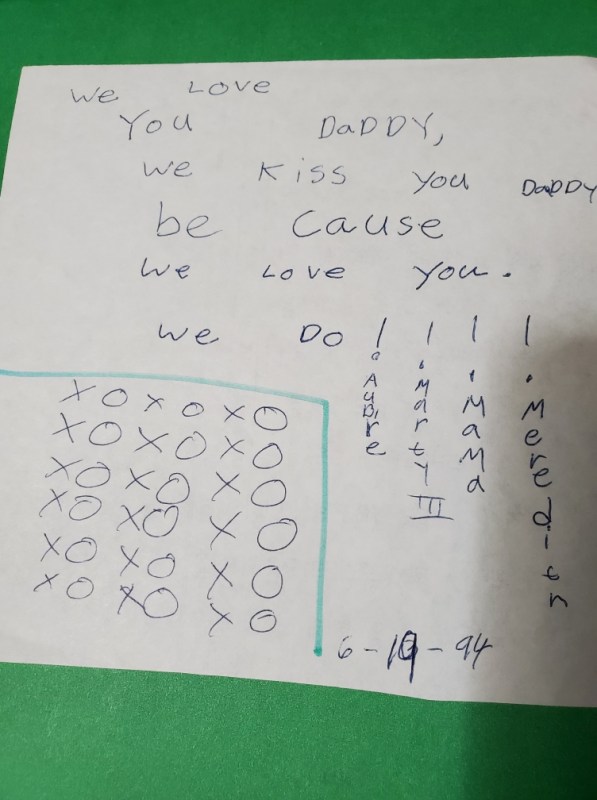 We LOVE
You DaDDY,
We Kiss you DaDDY
be Cause
We LOVE you.
We Do ! ! ! !
Marty III
MaMa
Mereditn
XO XO XO
XO XO XO
XO XO XO
XO XO XO
XO XO XO
XO XO XO
6-19-94